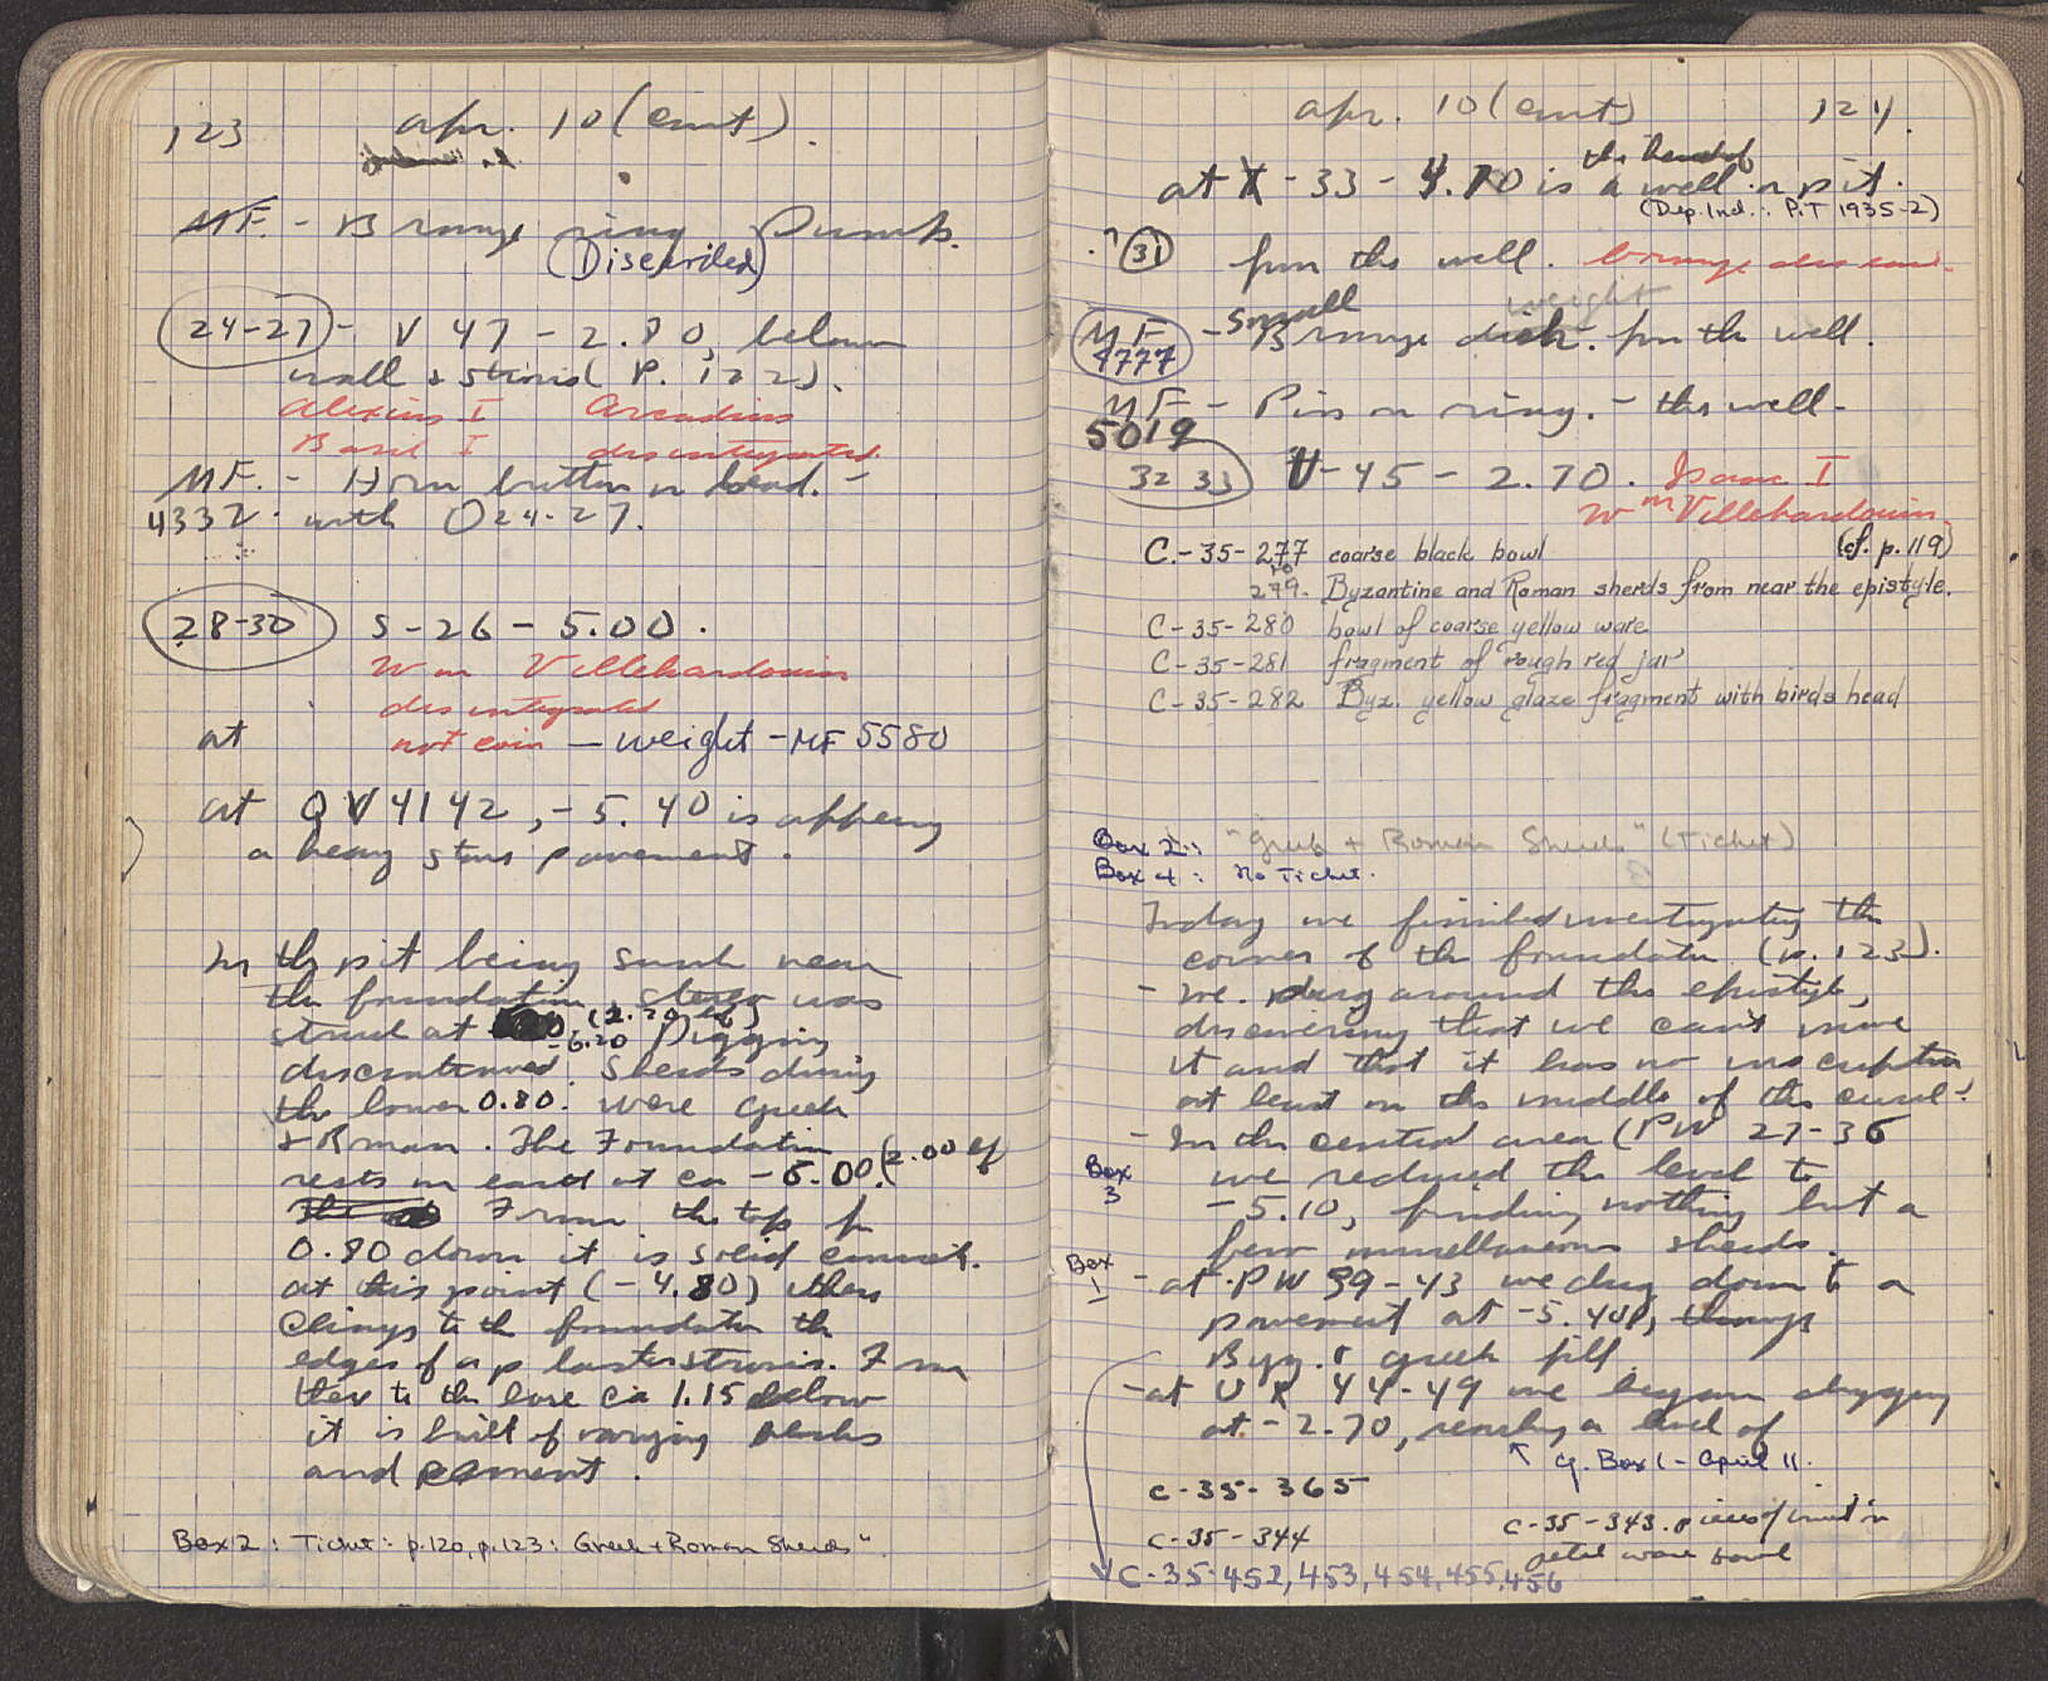 123 Apr. 10 (cont).
MF. - Bronze ring
(Discarded)
24-27 - V 47 - 2.80, below
wall & stones (P. 122).
Alexius I Arcadius
Basil I disintegrated.
MF. - Horn button or bead. -
4332. with O 24-27.
28-30 S-26 - 5.00.
Wm Villehardouin
disintegrated
at not coin - weight - MF 5580
at QV 41 42, - 5.40 is appearing
a heavy stone pavement.
In the pit being sunk near
the foundation, stereo was
struck at -6.20 (2.20 ) Digging
discontinued. Sherds during
the lower 0.80. were Greek
& Roman. The Foundation
rests on earth at ca -6.00. (2.00 of
From the top for
0.80 down it is solid cement.
at this point (-4.80) there
clings to the foundation the
edges of a plaster stosis. From
ther to the base ca 1.15 below
it is built of varying blocks
and cement.
Box 2: Ticket: p.120, p.123: Greek + Roman Sherds".
Apr. 10 (cont) 124.
the head of
at X - 33 - 4.70 is a well or pit.
(Dep. Ind.: Pit 1935-2)
31 from the well. bronze disc coin.
small weight
MF - Bronze disk. from the well.
4777
MF - Pin or ring. - the well -
5019
32 33 U-45 - 2.70. Isaac I
Wm Villehardouin.
C.-35-277 coarse black bowl (cf. p. 119)
to
279. Byzantine and Roman sherds from near the epistyle.
C-35-280 bowl of coarse yellow ware
C-35-281 fragment of rough red jar
C-35-282 Byz. yellow glaze fragment with birds head
Box 2: "Greek + Roman Sherds" (Ticket)
Box 4: No Ticket.
Today we finished investigating the
corner of the foundation (p. 123).
- We dug around the epistyle,
discovering that we can't move
it and that it has no inscription
at least on the middle of the curve!
- In the central area (PW 27-36
Box 3 we reduced the level to
-5.10, finding nothing but a
few miscellaneous sherds.
Box 1 - at PW 39-43 we dug down to a
pavement at -5.40, through
Byz. & Greek fill.
- at U X 44-49 we began digging
at - 2.70, reaching a level of
cf. Box 1 - April 11.
C-35-365
C-35-344
C-35-343. pieces of
petal ware bowl
C-35-452, 453, 454, 455, 456